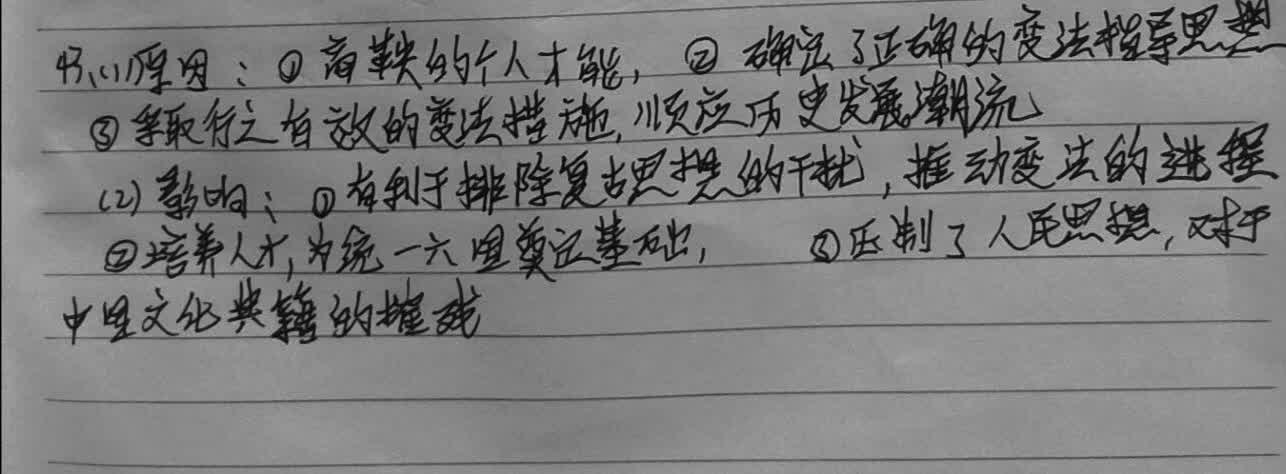 45、(1)原因：①商鞅的个人才能，②确定了正确的变法指导思想
③采取行之有效的变法措施，顺应历史发展潮流
(2)影响：①有利于排除复古思想的干扰，推动变法的进程
②培养人才，为统一六国奠定基础，③压制了人民思想，对于
中国文化典籍的摧残